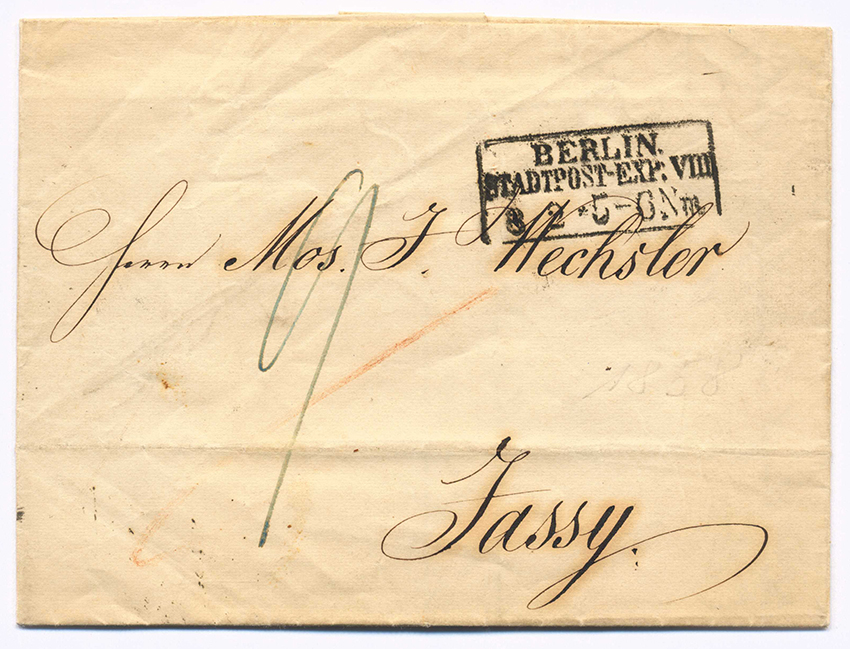 BERLIN.
STADTPOST-EXP: VIII
8 2 5-6 Nm.
Herrn Mos. J. Wechsler
9
1858
Jassy.